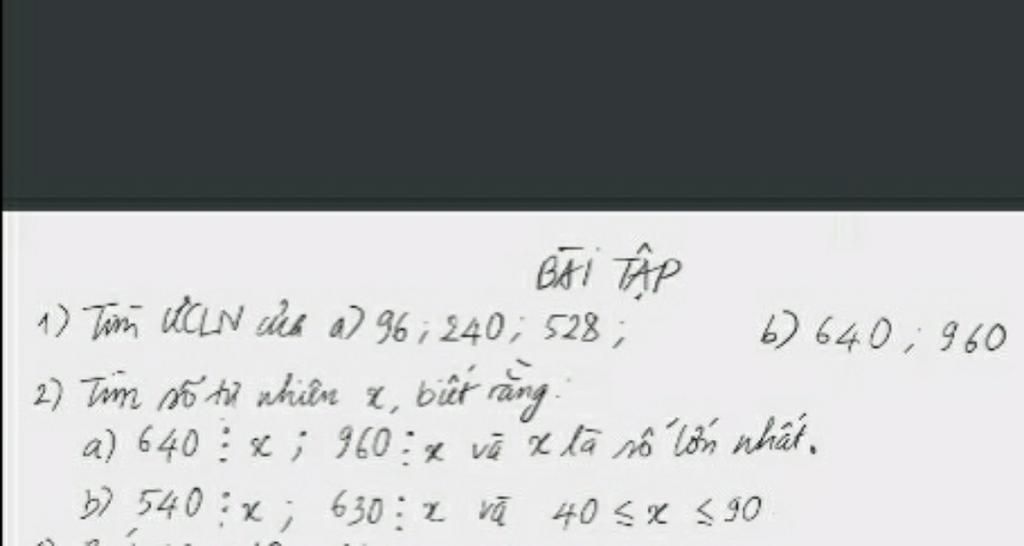 BÀI TẬP
1) Tìm ƯCLN của a) 96 ; 240 ; 528 ; b) 640 ; 960
2) Tìm số tự nhiên x, biết rằng:
a) 640 ⋮ x ; 960 ⋮ x và x là số lớn nhất.
b) 540 ⋮ x ; 630 ⋮ x và 40 ≤ x ≤ 90